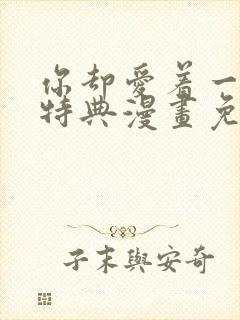 你却愛着一
特典漫畫免
子末與安奇